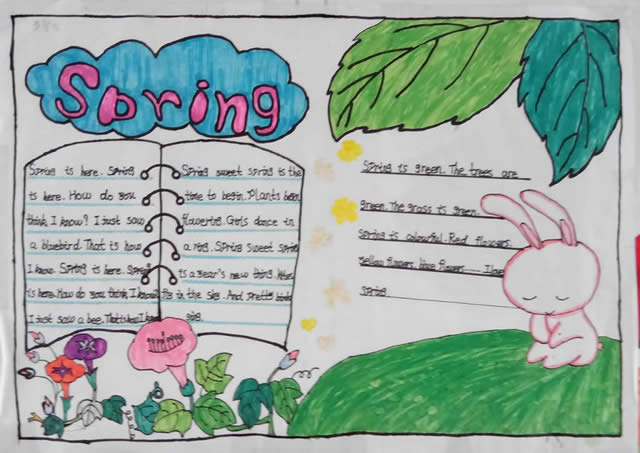 Spring
Spring is here. Spring
is here. How do you
think I know? I just saw
a bluebird. That is how
I know. Spring is here. Spring
is here. How do you think I know?
I just saw a bee. That is how I know
Spring sweet spring is the
time to begin. Plants
flowering. Girls dance in
a ring. Spring sweet spring
is a year's new thing.
fly in the sky. And pretty birds
sing.
Spring is green. The trees are
green. The grass is green.
Spring is colourful. Red flowers.
Yellow flowers. blue flowers. I love
spring